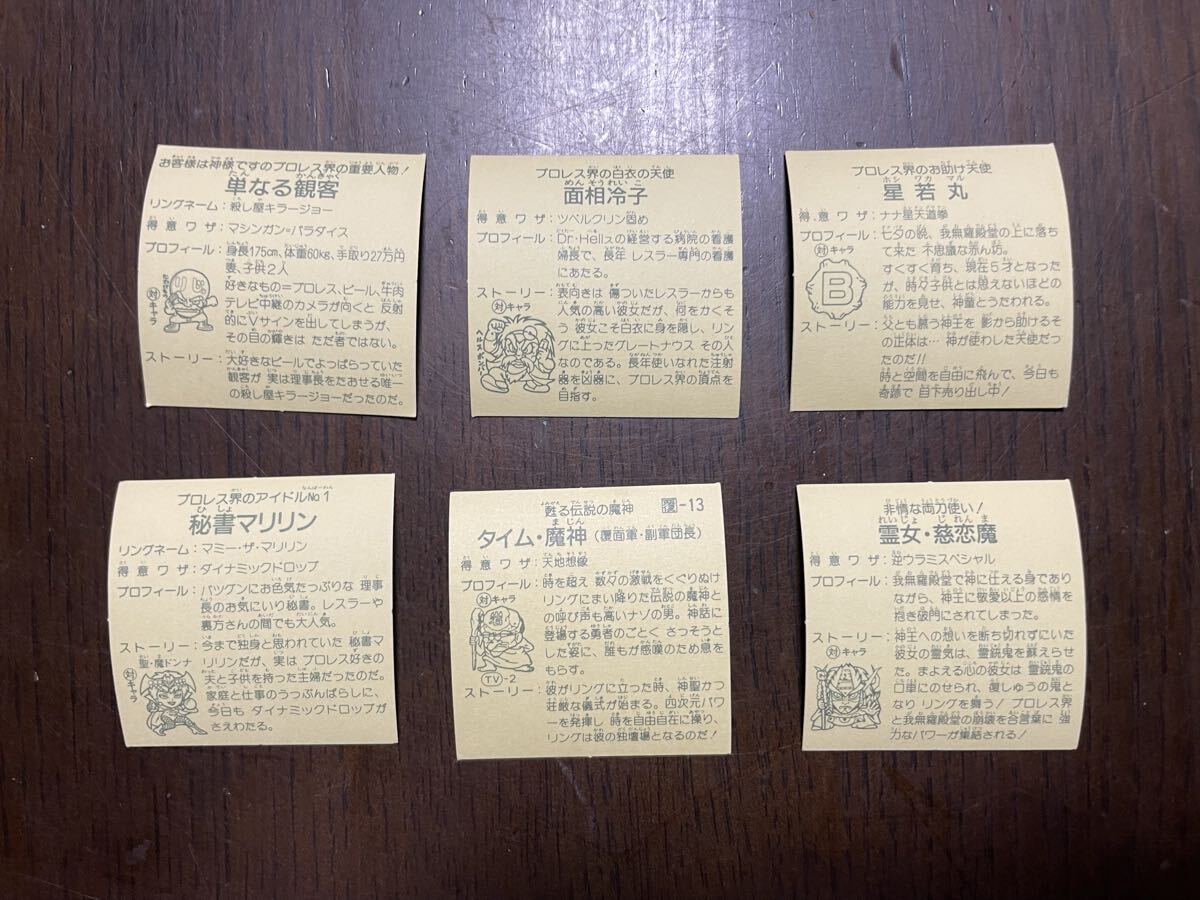 お客様は神様ですのプロレス界の重要人物!
たん かんきゃく
単なる観客
リングネーム:殺し屋キラージョー
得意ワザ:マシンガン=パラダイス
プロフィール:身長175cm、体重60kg、手取り27万円
妻、子供2人
好きなもの=プロレス、ビール、牛肉
テレビ中継のカメラが向くと 反射
的にVサインを出してしまうが、
その目の輝きは ただ者ではない。
対キャラ
ストーリー:大好きなビールでよっぱらっていた
観客が 実は理事長をたおせる唯一
の殺し屋キラージョーだったのだ。
プロレス界の白衣の天使
めんそうれいこ
面相冷子
得意ワザ:ツベルクリン固め
プロフィール:Dr・Hellスの経営する病院の看護
婦長で、長年 レスラー専門の看護
にあたる。
ストーリー:表向きは 傷ついたレスラーからも
人気の高い彼女だが、何をかくそ
う 彼女こそ白衣に身を隠し、リン
グに上ったグレートナウス その人
なのである。長年使いなれた注射
器を凶器に、プロレス界の頂点を
目指す。
対キャラ
プロレス界のお助け天使
ホシ ワカ マル
星若丸
得意ワザ:ナナ星天道拳
プロフィール:七夕の晩、我無羅殿堂の上に落ち
て来た 不思議な赤ん坊。
すくすく育ち、現在5才となった
が、時々子供とは思えないほどの
能力を見せ、神童とうたわれる。
対キャラ
B
ストーリー:父とも慕う神王を 影から助けるそ
の正体は… 神が使わした天使だっ
たのだ!!
時と空間を自由に飛んで、今日も
奇跡で 目下売り出し中!
プロレス界のアイドルNo1
ひしょ
秘書マリリン
リングネーム:マミー・ザ・マリリン
得意ワザ:ダイナミックドロップ
プロフィール:バツグンにお色気たっぷりな 理事
長のお気にいり秘書。レスラーや
裏方さんの間でも大人気。
ストーリー:今まで独身と思われていた 秘書マ
リリンだが、実は プロレス好きの
夫と子供を持った主婦だったのだ。
家庭と仕事のうっぷんばらしに、
今日も ダイナミックドロップが
さえわたる。
聖・魔ドンナ
対キャラ
甦る伝説の魔神
覆-13
まじん
タイム・魔神(覆面軍・副軍団長)
得意ワザ:天地想像
プロフィール:時を超え 数々の激戦をくぐりぬけ
リングにまい降りた伝説の魔神と
の呼び声も高いナゾの男。神話に
登場する勇者のごとく さっそうと
した姿に、誰もが感嘆のため息を
もらす。
対キャラ
TV-2
ストーリー:彼がリングに立った時、神聖かつ
荘厳な儀式が始まる。四次元パワ
ーを発揮し 時を自由自在に操り、
リングは彼の独壇場となるのだ!
非情な両刀使い!
れいじょ じれんま
霊女・慈恋魔
得意ワザ:逆ウラミスペシャル
プロフィール:我無羅殿堂で神に仕える身であり
ながら、神王に敬愛以上の感情を
抱き破門にされてしまった。
ストーリー:神王への想いを断ち切れずにいた
彼女の霊気は、霊銃鬼を蘇えらせ
た。まよえる心の彼女は 霊銃鬼の
口車にのせられ、復しゅうの鬼と
なり リングを舞う! プロレス界
と我無羅殿堂の崩壊を合言葉に 強
力なパワーが集結される!
対キャラ